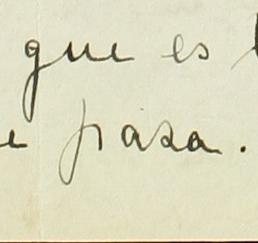 que es
pasa.